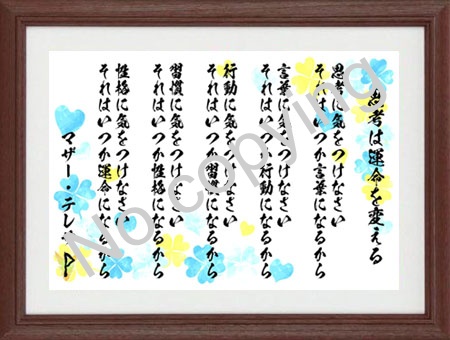 思考は運命を変える
思考に気をつけなさい
それはいつか言葉になるから
言葉に気をつけなさい
それはいつか行動になるから
行動に気をつけなさい
それはいつか習慣になるから
習慣に気をつけなさい
それはいつか性格になるから
性格に気をつけなさい
それはいつか運命になるから
マザー・テレサ
No copying